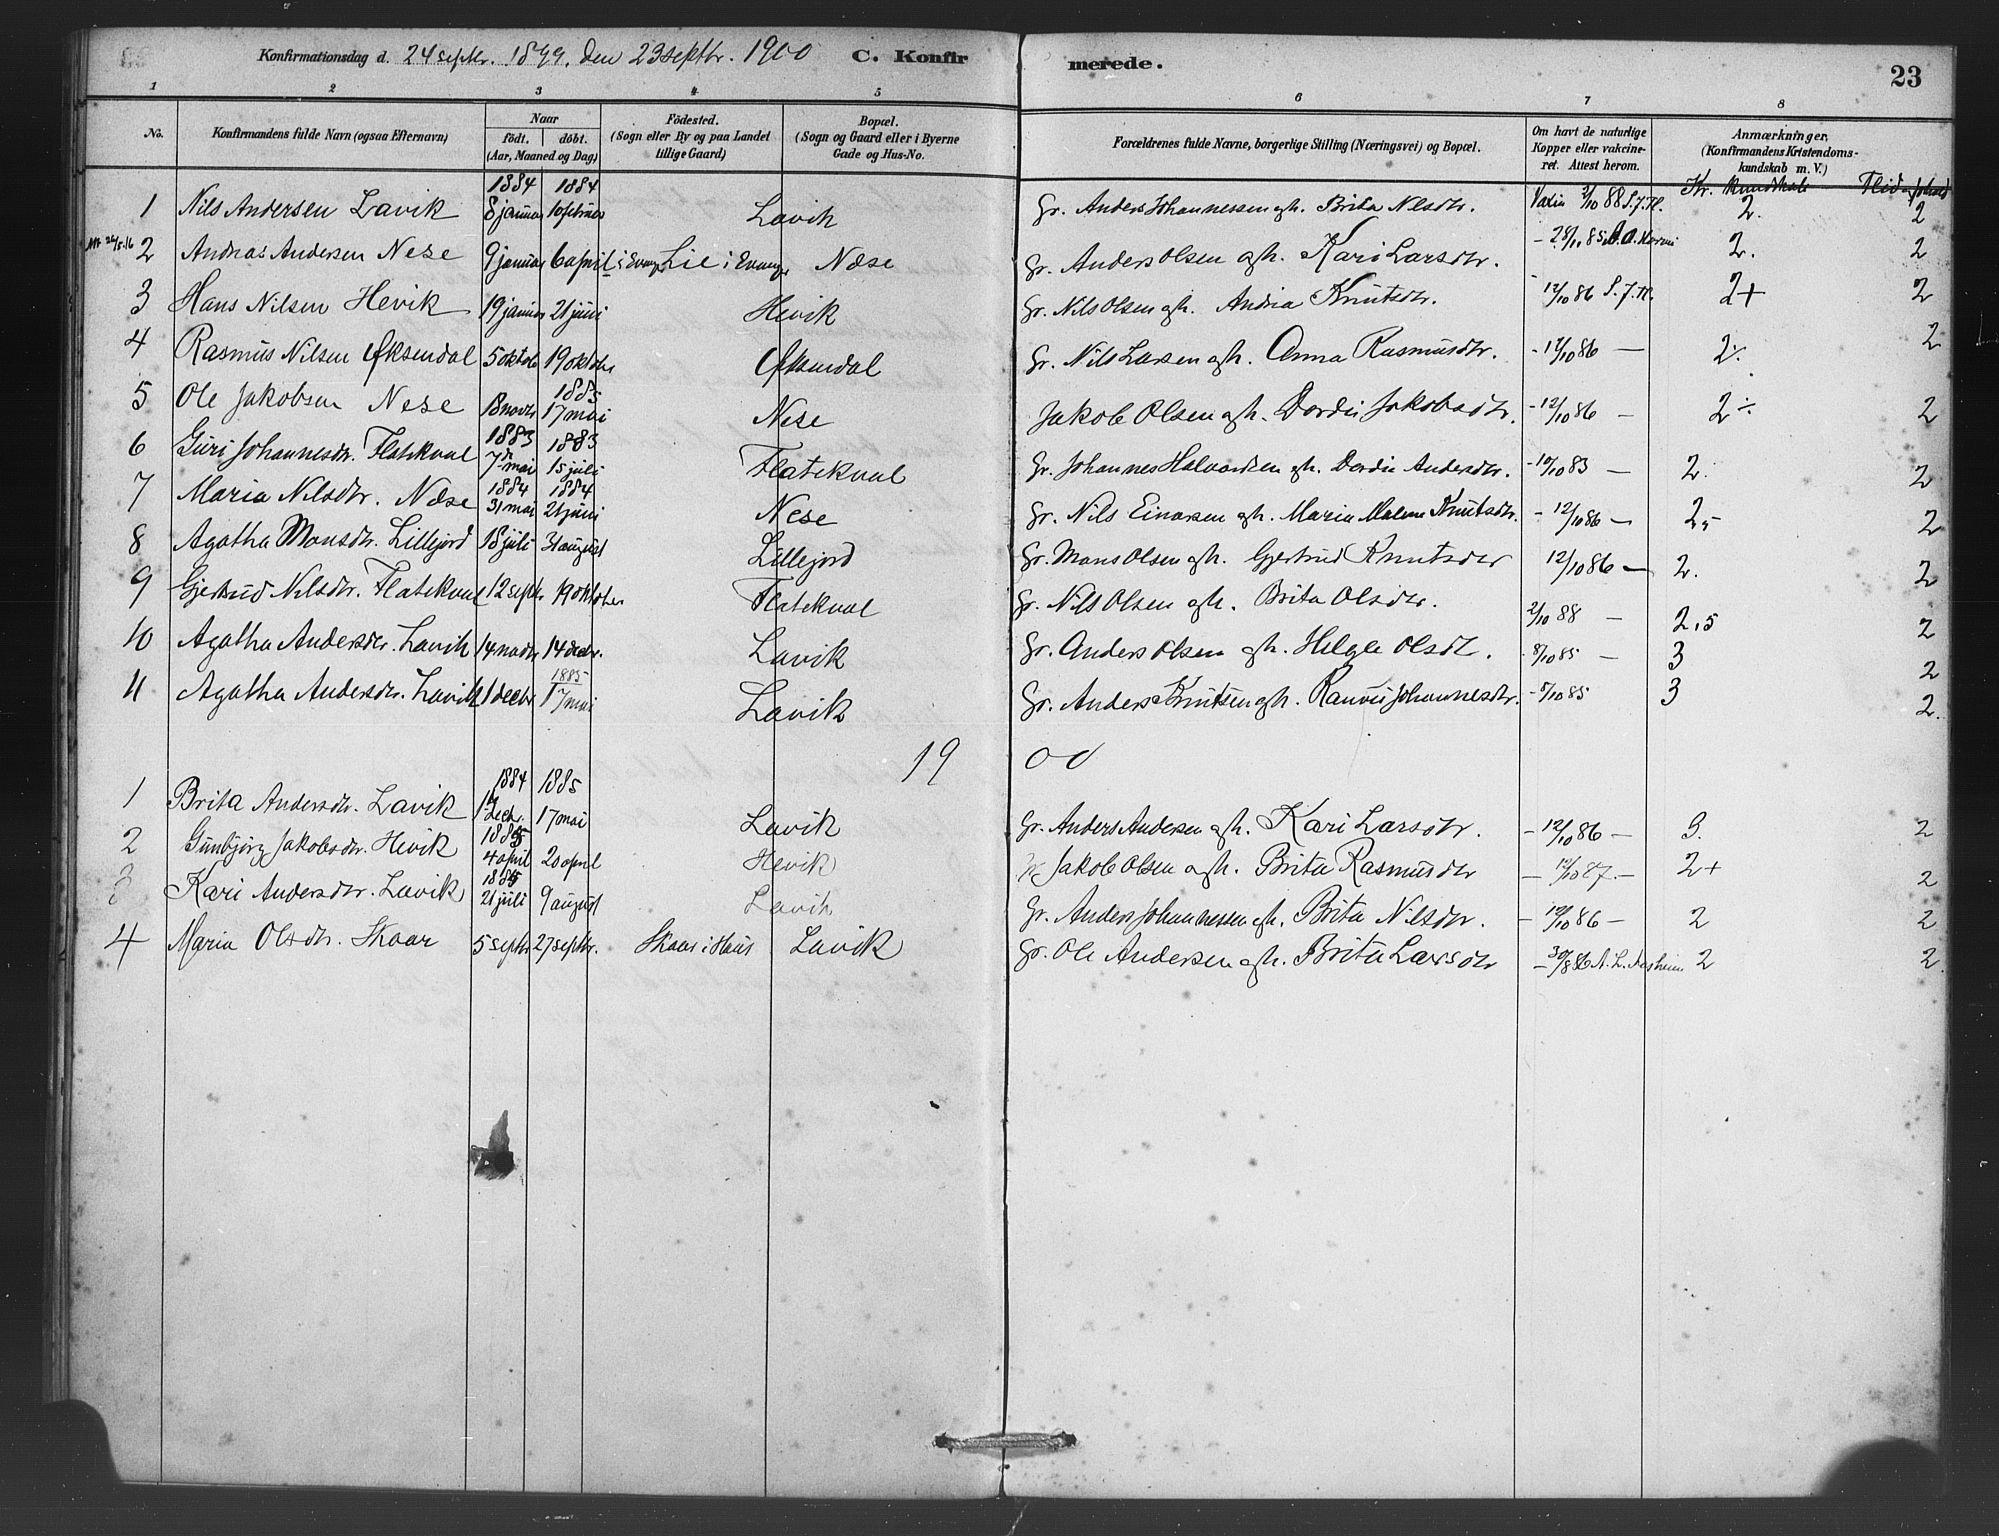 Konfirmationsdag d. 24 septr. 1899. den 23 septbr. 1900 C. Konfir merede. 23
1 2 3 4 5 6 7 8
No. Konfirmandens fulde Navn (ogsaa Efternavn) Naar födt. döbt. (Aar, Maaned og Dag) Födested. (Sogn eller By og paa Landet tillige Gaard) Bopæl. (Sogn og Gaard eller i Byerne Gade og Hus-No. Forældrenes fulde Navne, borgerlige Stilling (Næringsvei) og Bopæl. Om havt de naturlige Kopper eller vakcineret. Attest herom. Anmærkninger, (Konfirmandens Kristendomskundskab m. V.)
Kr. kundskab Flid
1884 1884
1 Nils Andersen Lavik 8 januar 10 februar Lavik Gr. Anders Johannessen gh. Brita Nilsdtr. Vaxin 2/10 88 S.J.H. 2. 2
2 Andreas Andersen Nese 9 januar 6 april Lie i Evanger Næse Gr. Anders Olsen og h. Kari Larsdtr. 2. 2
3 Hans Nilsen Hevik 19 januar 21 juni Hevik Gr. Nils Olsen og h. Andria Knutsdtr. 12/10 86 S.J.H. 2+ 2
4 Rasmus Nilsen Øksendal 5 oktob 19 oktober Øksendal Gr. Nils Larsen og h. Anna Rasmusdtr. - 12/10 86 — 2÷ 2
1885
5 Ole Jakobsen Nese 18 novbr 17 mai Nese Jakob Olsen og h. Dordei Jakobsdtr. - 12/10 86 — 2÷ 2
1883 1883
6 Guri Johannesdr. Flatekval 7de mai 15 juli Flatekval Gr. Johannes Halvordsen og h. Dordei Andersdtr. - 10/10 83 — 2. 2
1884 1884
7 Maria Nilsdtr. Næse 31 mai 21 juni Nese Gr. Nils Einarsen og h. Maria Malene Knutsdtr. - 12/10 86 — 2,5 2
8 Agatha Monsdtr. Lillejord 18 juli 31 august Lillejord Gr. Mons Olsen og h. Gjertrud Knutsdtr 12/10 86 — 2. 2
9 Gjertrud Nilsdtr. Flatekval 12 septbr 19 oktober Flatekval Gr. Nils Olsen og h. Brita Olsdtr. 2/10 88 — 2,5 2
10 Agatha Andersdtr. Lavik 14 novbr 14 decbr. Lavik Gr. Anders Olsen og h. Helge Olsdt. 8/10 85 — 3 2
1885
11 Agatha Andersdtr. Lavik 1 decbr 17 mai Lavik Gr. Anders Knutsen og h. Ranvei Johannesdtr. 3 2.
19 00
1884 1885
1 Brita Andersdtr. Lavik 1te decbr. 17 mai Lavik Gr. Anders Andersen og h. Kari Larsdtr. - 12/10 86 — 3. 2
1885
2 Gunbjørg Jakobsdtr. Hevik 4 april 20 april Hevik Jakob Olsen og h. Brita Rasmusdtr — 12/10 87. — 2+ 2
1885
3 Kari Andersdtr. Lavik 21 juli 9 august Lavik Gr. Anders Johannessen og h. Brita Nilsdtr. - 12/10 86 - 2 2
4 Maria Olsdtr. Skaar 5 septbr 27 septbr. Skaar i Haus Lavik Gr. Ole Andersen og h. Brita Larsdtr — 30/8 86 A. L. Aasheim 2 2